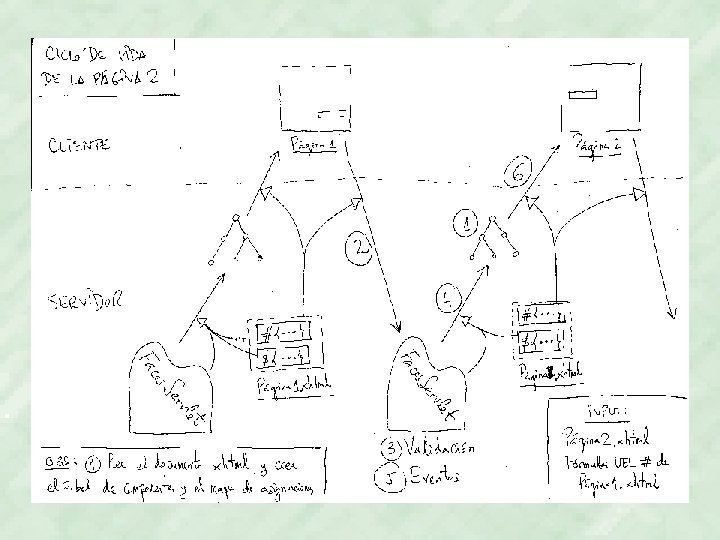 CICLO DE VIDA
DE LA PÁGINA 2
CLIENTE
Página 1
Página 2
6
1
2
SERVIDOR
#{....}
${....}
#{....}
${....}
FacesServlet
Página 1.xhtml
FacesServlet
Página 1.xhtml
OBS: 1 el documento xhtml y crea
el de componentes y un mapa de asignaciones
3 Validación
5 Eventos
INPUT:
Página2.xhtml
UEL # de
Página1.xhtml